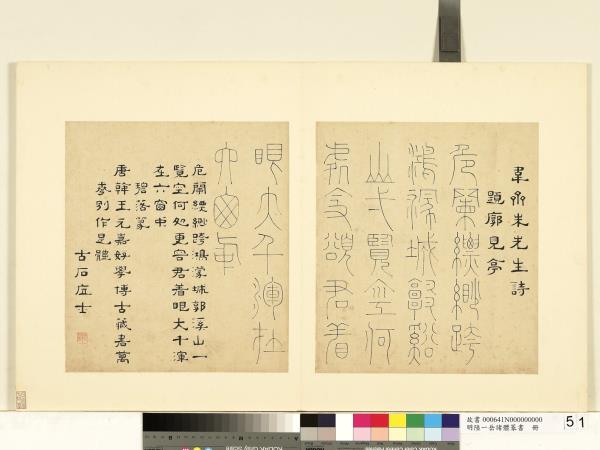 韋齋朱先生詩
題廓見亭
危闌縹緲跨
鴻濛城郭谿
山弌覽空何
處更頌君着
眼大千渾在
六囱中
危闌縹緲跨鴻濛城郭溪山一
覽空何処更容君着眼大千渾
在六窗中
碧落篆
唐韓王元嘉好學傳古藏書萬
作是體
古石士
故書 000641N000000000
明陸一岳諸體篆書 冊
51